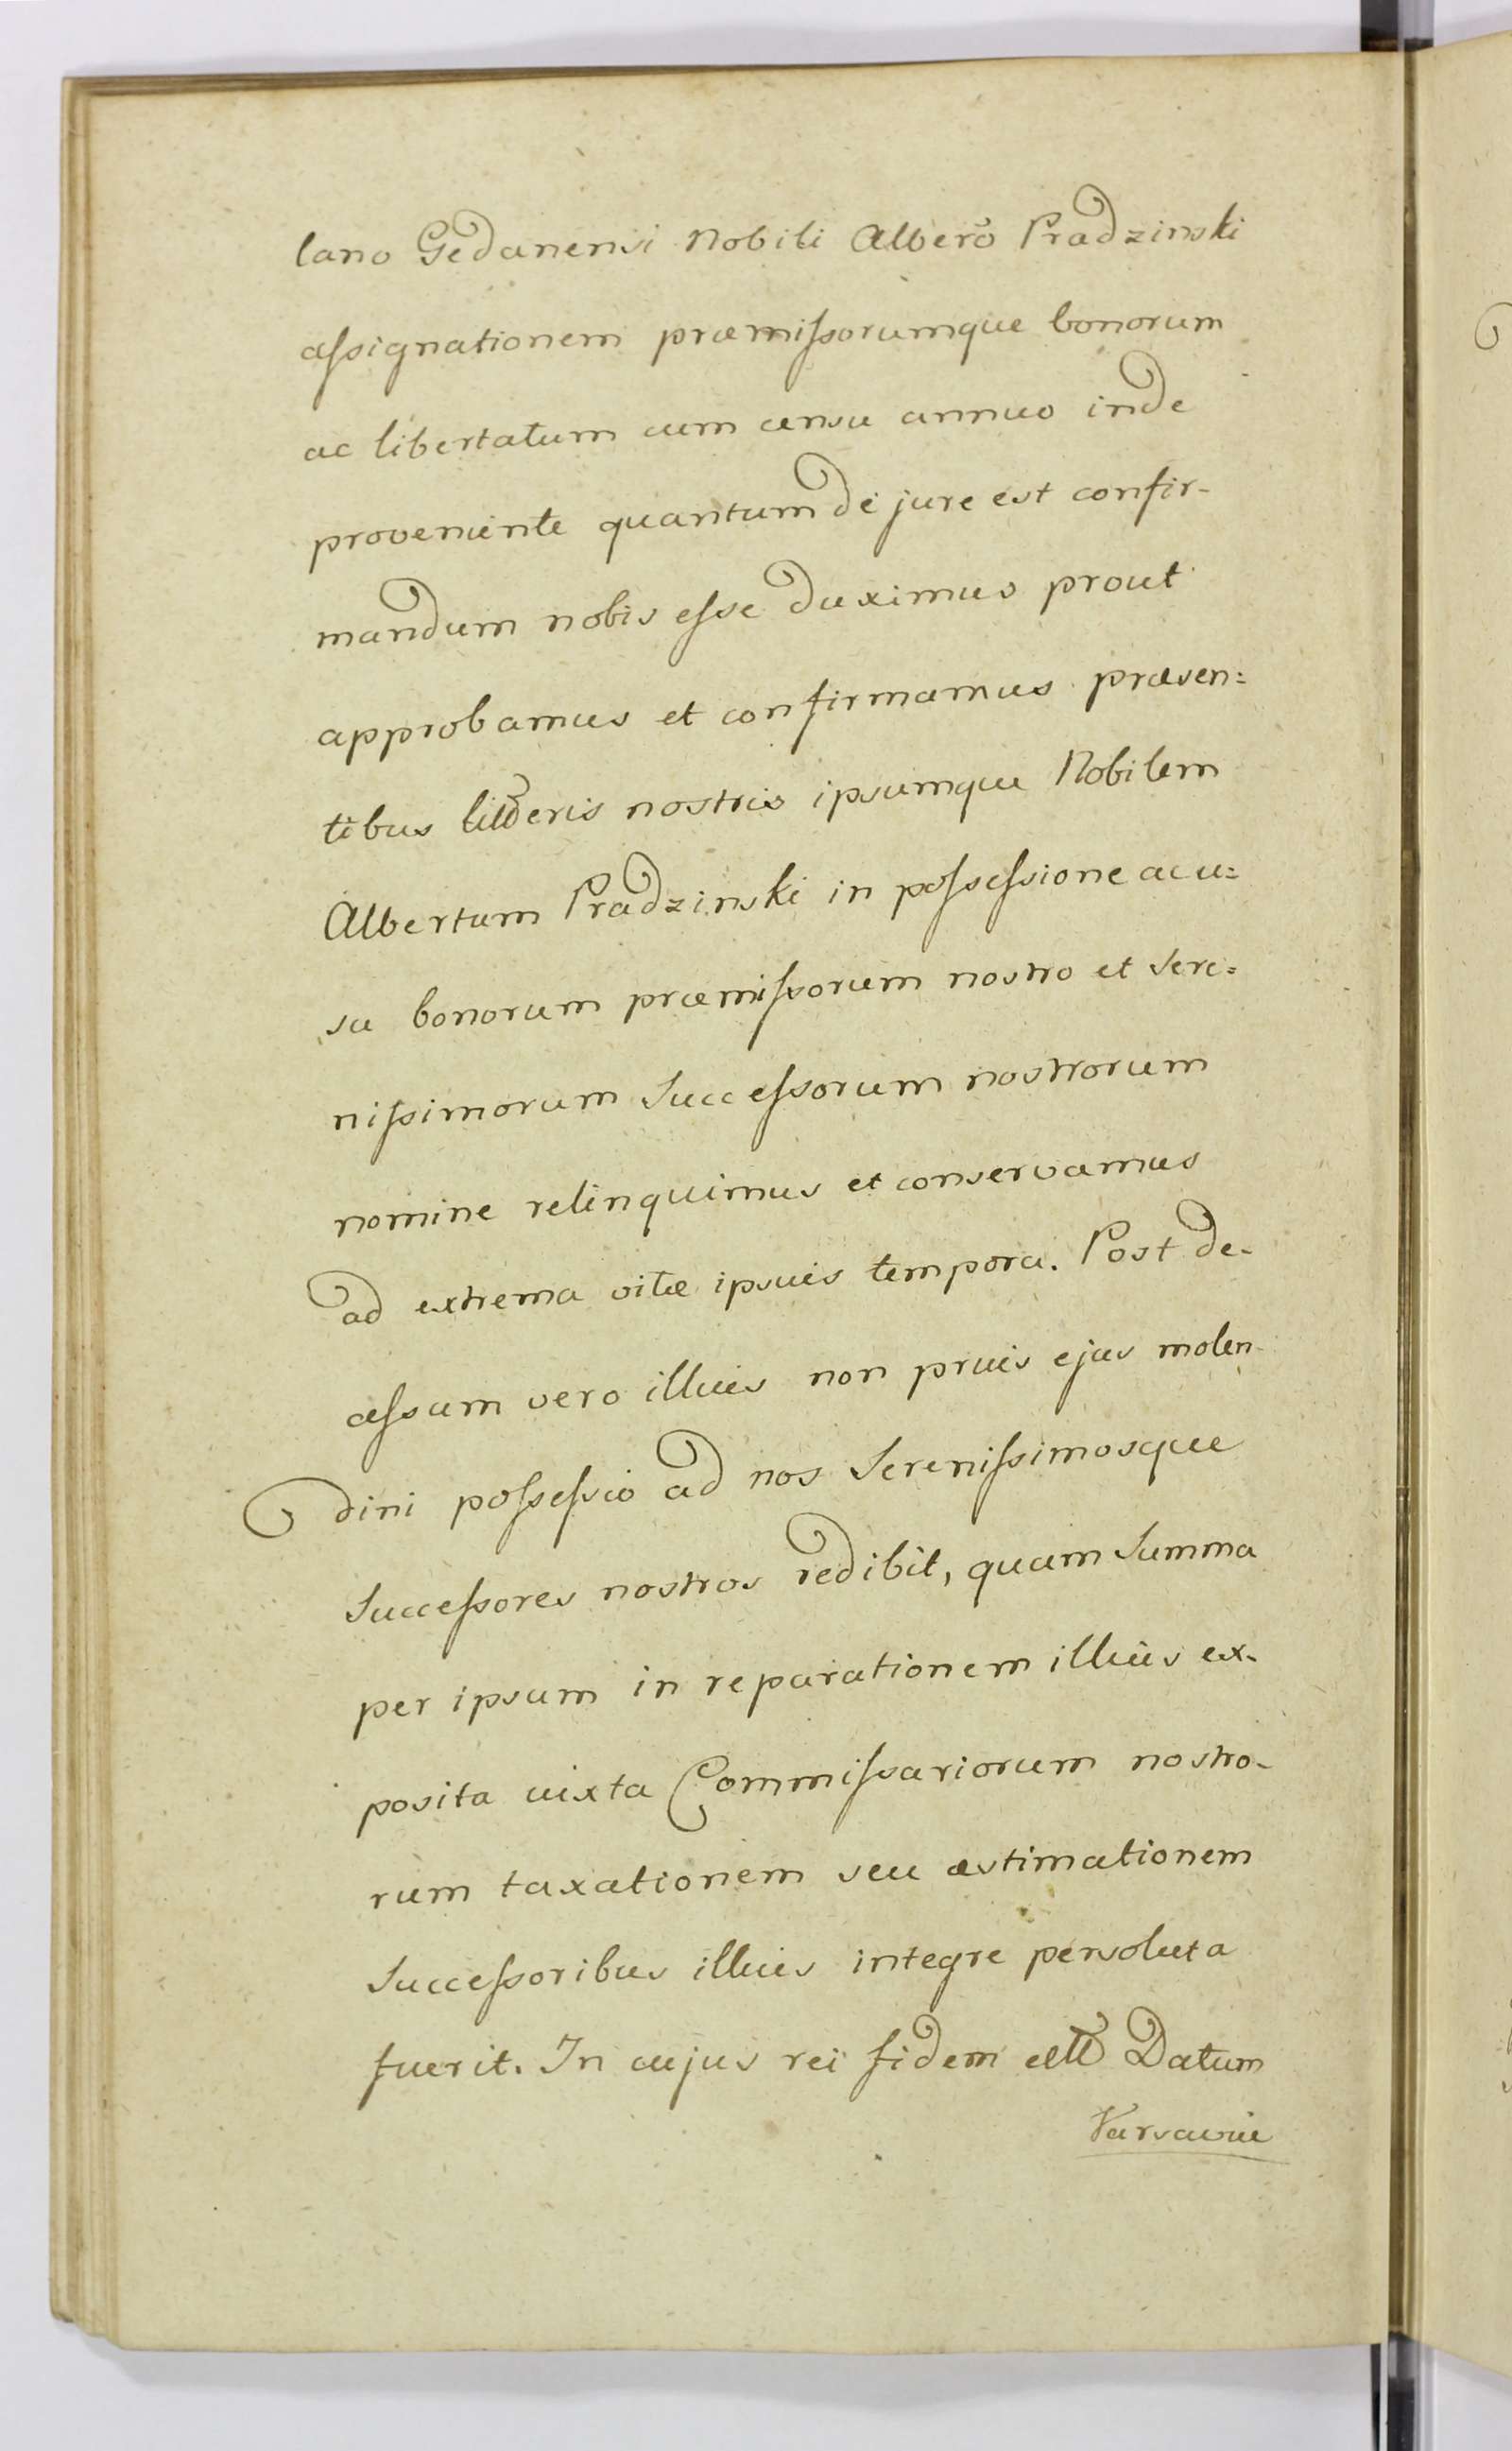 lano Gedanensi Nobili Alberõ Pradzinski
assignationem præmissorumque bonorum
ac libertatum cum censu annuo inde
proveniente quantum de jure est confir-
mandum nobis esse duximus prout
approbamus et confirmamus præsen=
tibus litteris nostris ipsumque Nobilem
Albertum Pradzinski in possessione ac u=
su bonorum præmissorum nostro et Sere=
nissimorum Successorum nostrorum
nomine relinquimus et conservamus
ad extrema vitæ ipsius tempora. Post de-
cessum vero illius non prius ejus molen-
dini possessio ad nos Serenissimosque
Successores nostros redibit, quam Summa
per ipsum in reparationem illius ex-
posita iuxta Commissariorum nostro-
rum taxationem seu æstimationem
Successoribus illius integre persoluta
fuerit. In cujus rei fidem ett Datum
Varsaviæ